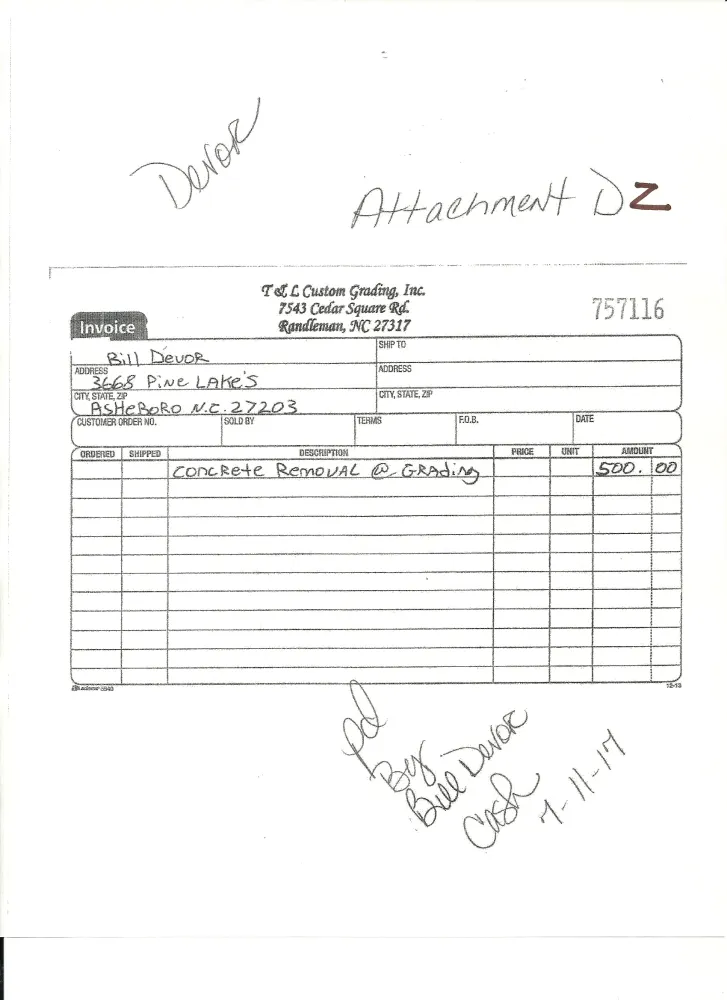 Devor
Attachment D2
T & L Custom Grading, Inc.
7543 Cedar Square Rd.
Randleman, NC 27317
757116
Invoice
SHIP TO
Bill Devor
ADDRESS
ADDRESS
3668 Pine LAke's
CITY, STATE, ZIP
CITY, STATE, ZIP
ASHeBoRo N.C. 27203
CUSTOMER ORDER NO. SOLD BY TERMS F.O.B. DATE
ORDERED SHIPPED DESCRIPTION PRICE UNIT AMOUNT
CONCRete RemovAL @ GRAding 500. 00
adams 5840
12-13
pd
By
Bill Devor
Cash 7-11-17